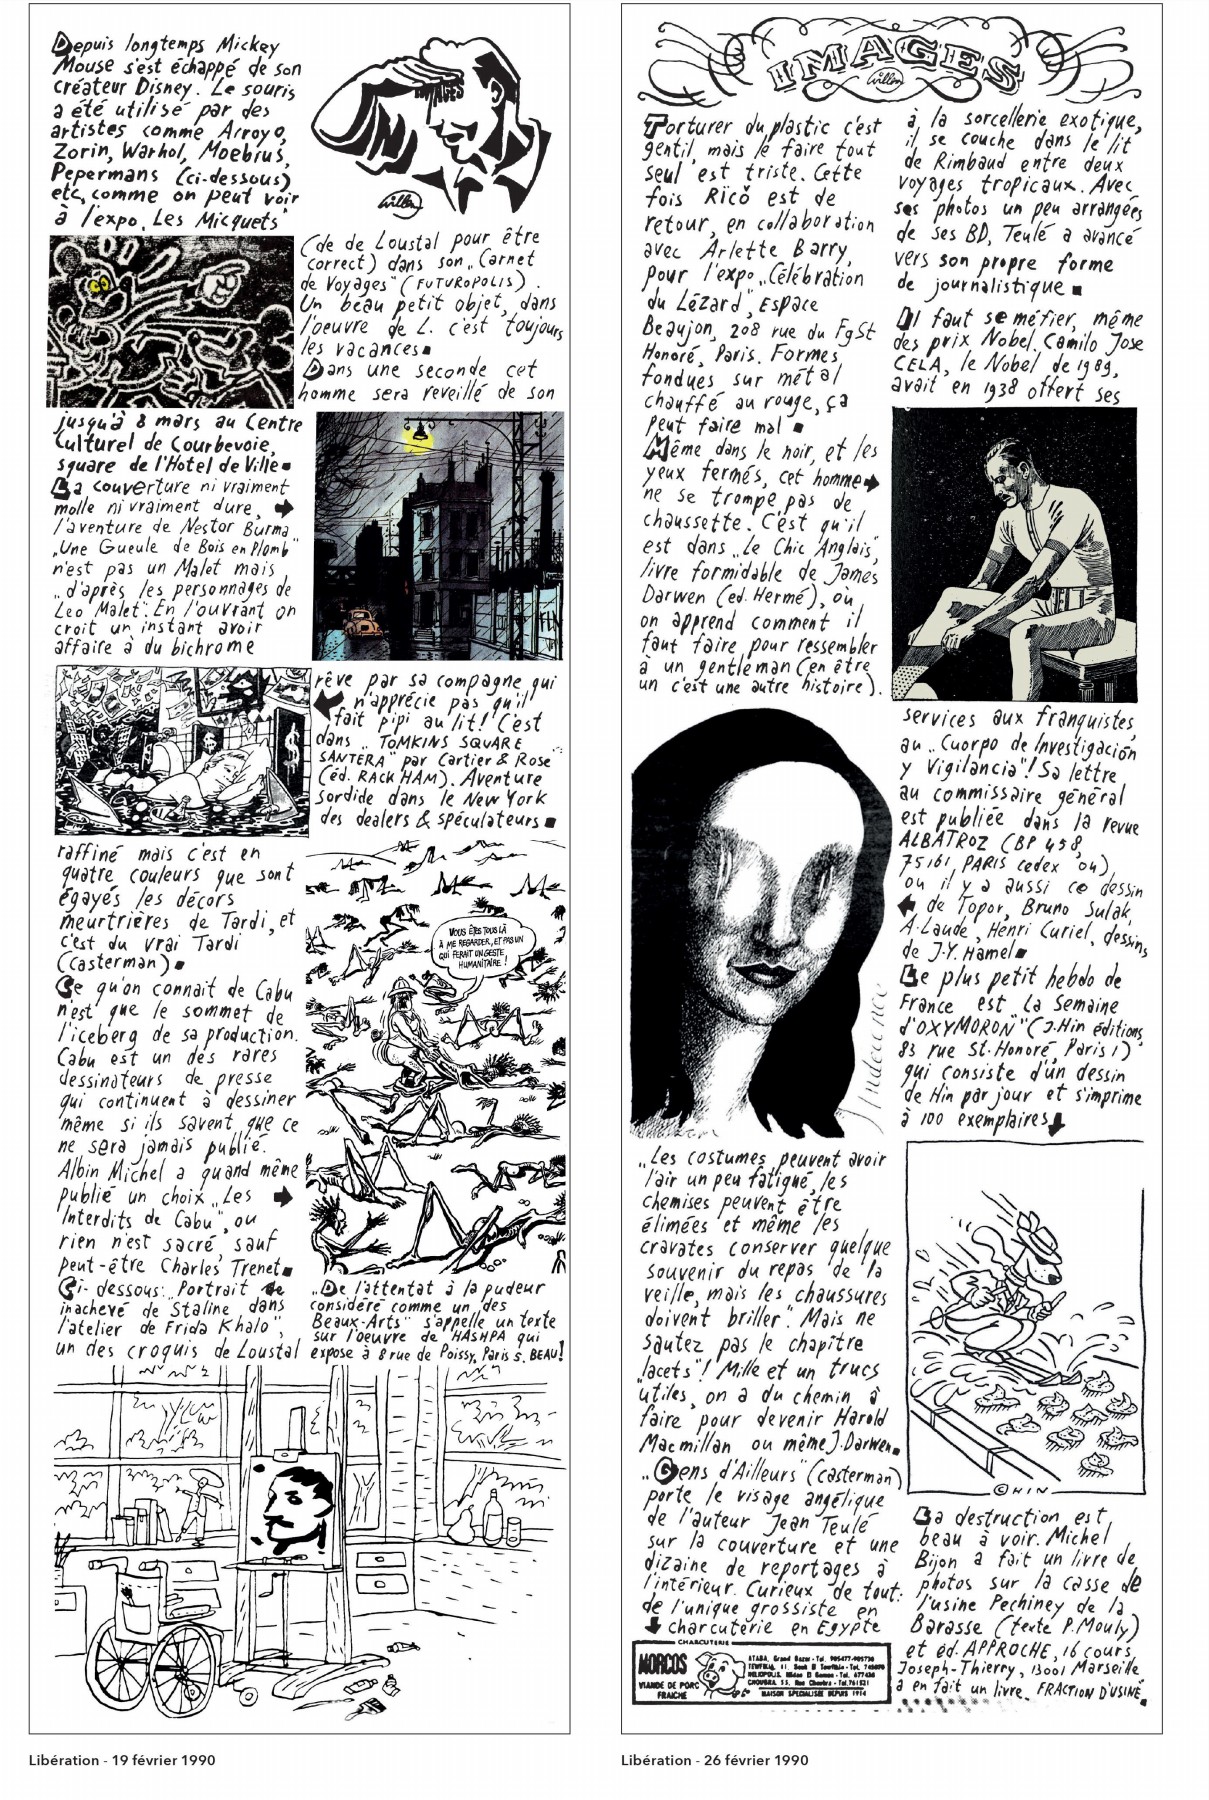 Depuis longtemps Mickey
Mouse s'est échappé de son
créateur Disney. Le souris
a été utilisé par des
artistes comme Arroyo,
Zorin, Warhol, Moebius,
Pepermans (ci-dessous)
etc, comme on peut voir
à l'expo „Les Micquets"
jusqu'à 8 mars au Centre
Culturel de Courbevoie,
square de l'Hotel de Ville
La couverture ni vraiment
molle ni vraiment dure,
l'aventure de Nestor Burma
„Une Gueule de Bois en Plomb"
n'est pas un Malet mais
„d'après les personnages de
Leo Malet". En l'ouvrant on
croit un instant avoir
affaire à du bichrome
raffiné mais c'est en
quatre couleurs que sont
égayés les décors
meurtrières de Tardi, et
c'est du vrai Tardi
(casterman)
Ce qu'on connait de Cabu
n'est que le sommet de
l'iceberg de sa production.
Cabu est un des rares
dessinateurs de presse
qui continuent à dessiner
même si ils savent que ce
ne sera jamais publié.
Albin Michel a quand même
publié un choix „Les
Interdits de Cabu", ou
rien n'est sacré, sauf
peut-être Charles Trenet
Ci-dessous: „Portrait
inachevé de Staline, dans
l'atelier de Frida Khalo",
un des croquis de Loustal
Willem
(de de Loustal pour être
correct) dans son „Carnet
de Voyages" (FUTUROPOLIS).
Un beau petit objet, dans
l'oeuvre de L. c'est toujours
les vacances
Dans une seconde cet
homme sera reveillé de son
rêve par sa compagne qui
n'apprécie pas qu'il
fait pipi au lit! C'est
dans „TOMKINS SQUARE
SANTERA" par Cartier & Rose
(éd. RACKHAM). Aventure
sordide dans le New York
des dealers & spéculateurs
VOUS ÊTES TOUS LÀ
À ME REGARDER, ET PAS UN
QUI FERAIT UN GESTE
HUMANITAIRE!
„De l'attentat à la pudeur
considéré comme un des
Beaux-Arts" s'appelle un texte
sur l'oeuvre de HASHPA qui
expose à 8 rue de Poissy, Paris 5. BEAU!
Libération - 19 février 1990
IMAGES
Willem
Torturer du plastic c'est
gentil, mais le faire tout
seul est triste. Cette
fois Ricŏ est de
retour, en collaboration
avec Arlette Barry,
pour l'expo „Célébration
du Lézard", Espace
Beaujon, 208 rue du Fg St
Honoré, Paris. Formes
fondues sur métal
chauffé au rouge, ça
peut faire mal
Même dans le noir, et les
yeux fermés, cet homme
ne se trompe pas de
chaussette. C'est qu'il
est dans „Le Chic Anglais",
livre formidable de James
Darwen (ed. Hermé), ou
on apprend comment il
faut faire pour ressembler
à un gentleman (en être
un c'est une autre histoire).
Indecence
„Les costumes peuvent avoir
l'air un peu fatigué, les
chemises peuvent être
élimées et même les
cravates conserver quelque
souvenir du repas de la
veille, mais les chaussures
doivent briller". Mais ne
sautez pas le chapître
„lacets"! Mille et un trucs
utiles, on a du chemin à
faire pour devenir Harold
Macmillan ou même J. Darwen
„Gens d'Ailleurs" (casterman)
porte le visage angélique
de l'auteur Jean Teulé
sur la couverture et une
dizaine de reportages à
l'intérieur. Curieux de tout:
de l'unique grossiste en
charcuterie en Egypte
CHARCUTERIE
MORCOS
VIANDE DE PORC
FRAICHE
ATABA, Grand Bazar - Tel. 905477-905730
MAISON SPECIALISEE DEPUIS 1914
à la sorcellerie exotique,
il se couche dans le lit
de Rimbaud entre deux
voyages tropicaux. Avec
ses photos un peu arrangées
de ses BD, Teulé a avancé
vers son propre forme
de journalistique
Il faut se méfier, même
des prix Nobel. Camilo Jose
CELA, le Nobel de 1989,
avait en 1938 offert ses
services aux franquistes,
au „Cuorpo de Investigación
y Vigilancia"! Sa lettre
au commissaire général
est publiée dans la revue
ALBATROZ (BP 458,
75161 PARIS cedex 04)
ou il y a aussi ce dessin
de Topor, Bruno Sulak,
A. Laude, Henri Curiel, dessins
de J-Y. Hamel
Le plus petit hebdo de
France est „La Semaine
d'OXYMORON" (J.Hin éditions,
83 rue St-Honoré, Paris 1)
qui consiste d'un dessin
de Hin par jour et s'imprime
à 100 exemplaires
©HIN
La destruction est
beau à voir. Michel
Bijon a fait un livre de
photos sur la casse de
l'usine Pechiney de la
Barasse (texte P. Mouly)
et éd. APPROCHE, 16 cours
Joseph-Thierry, 13001 Marseille
a en fait un livre. FRACTION D'USINE.
Libération - 26 février 1990